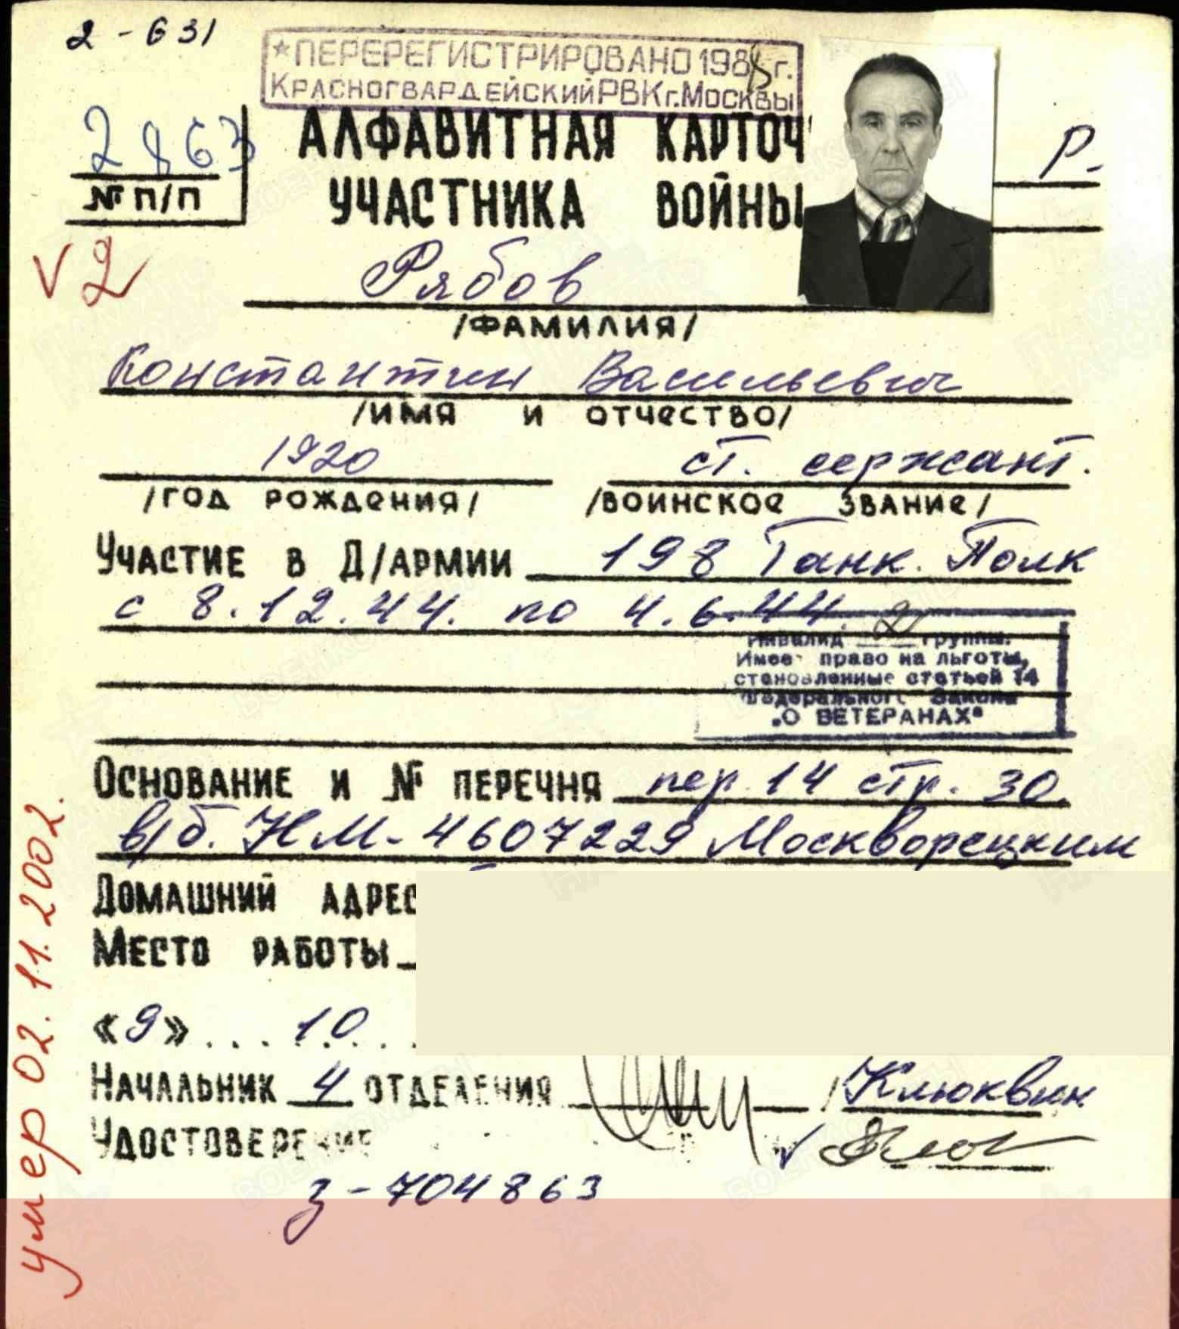 2-631
★ПЕРЕРЕГИСТРИРОВАНО 198 г.
КРАСНОГВАРДЕЙСКИЙ РВК г. МОСКВЫ
2863
№ П/П
АЛФАВИТНАЯ КАРТОЧ
УЧАСТНИКА ВОЙНЫ
Р.
V2
Рябов
/ФАМИЛИЯ/
Константин Васильевич
/ИМЯ И ОТЧЕСТВО/
1920 ст. сержант.
/ГОД РОЖДЕНИЯ/ /ВОИНСКОЕ ЗВАНИЕ/
УЧАСТИЕ В Д/АРМИИ 198 Танк. Полк
с 8.12.44. по 4.6.44.
Инвалид 2 группы.
Имеет право на льготы,
становленные статьей 14
Федерального Закона
„О ВЕТЕРАНАХ"
ОСНОВАНИЕ И № ПЕРЕЧНЯ пер. 14 стр. 30
в/б. НМ-4607229 Москворецким
ДОМАШНИЙ АДРЕС
МЕСТО РАБОТЫ
«9»...10
НАЧАЛЬНИК 4 ОТДЕЛЕНИЯ /Клюквин
УДОСТОВЕРЕНИЕ
з-704863
умер 02.11.2002.